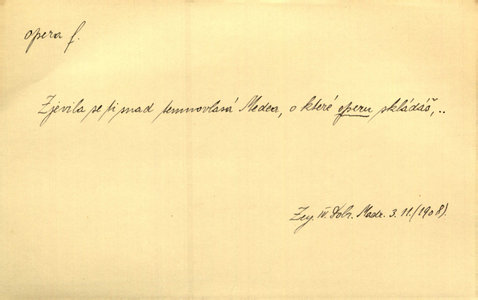 opera f.
Zjevila se ti snad temnovlasá Medea, o které operu skládáš,..
Zey. IV. Dob. Madr. 3. 11. (1908).